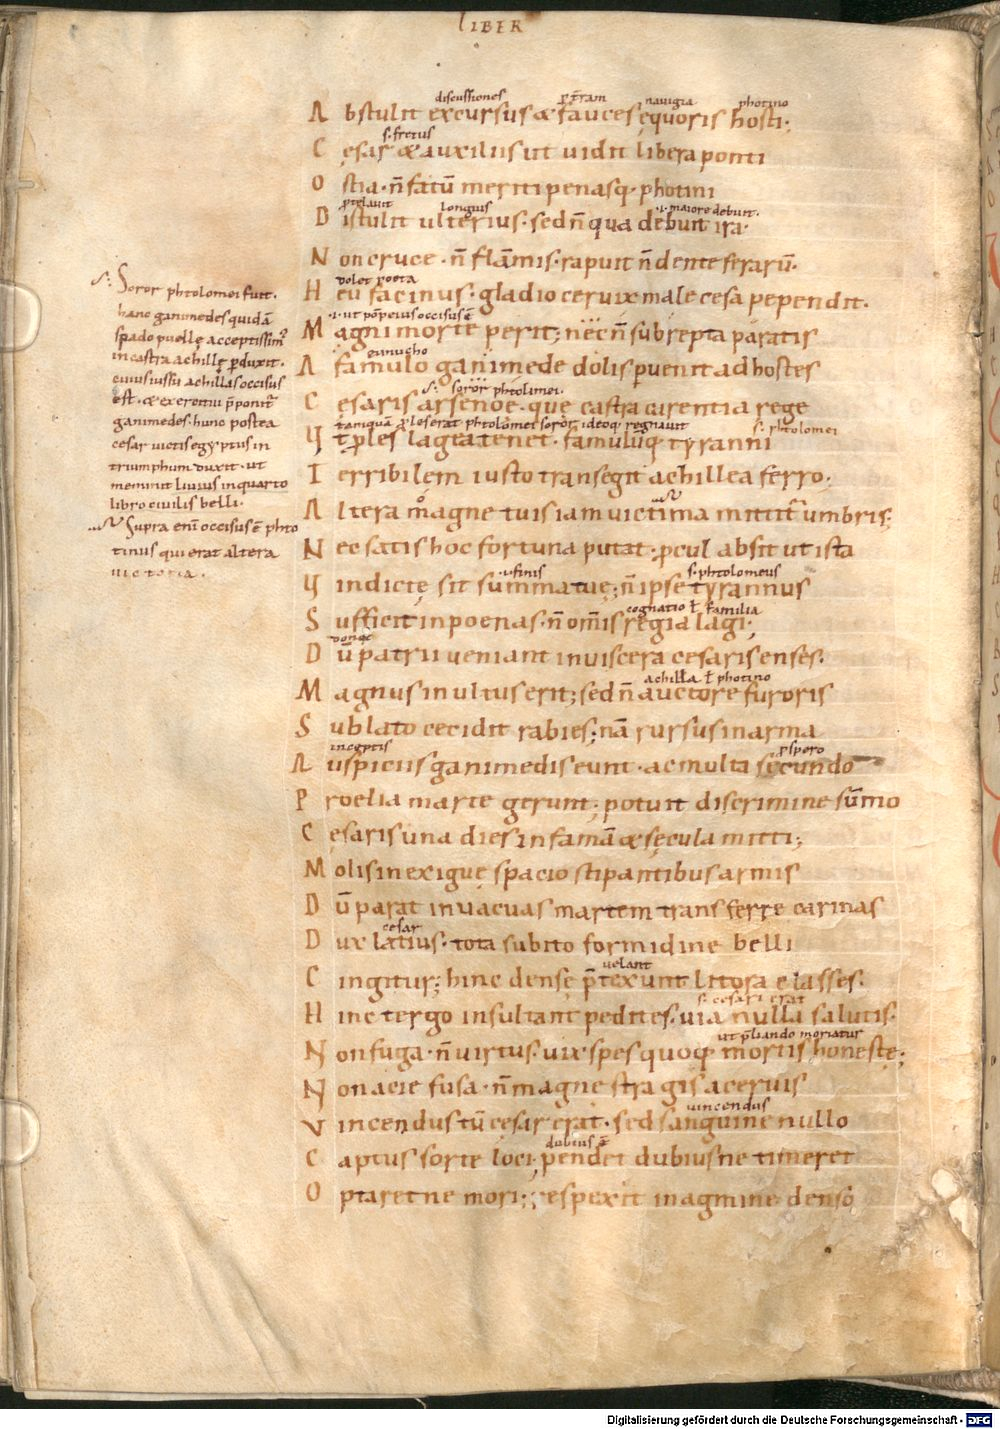 LIBER
discussiones p̄ t̄ram navigia photino
A bstulit excursus & fauces ęquoris hosti;
s. fretus
C ęsar & auxiliis ut uidit libera ponti
O stia· n̄ fatū meriti penasq· photini
ꝓtelauit longius ·i· maiore debuit·
D istulit ulterius· sed n̄ qua debuit ira·
N on cruce· n̄ flāmis· rapuit n̄ dente ferarū·
dolet poeta
H eu facinus· gladio ceruix male cesa pependit·
·i· ut pōpeius occisus ē
M agni morte perit; nec n̄ subrepta paratis
eunucho
A famulo ganimede dolis ꝑuenit ad hostes
s: soror ptholomei·
C esaris arsenoe· que castra carentia rege
tamquā ꝓles erat ptholomei soror ideoq regnauit s· ptholomei
U t ꝓles lagea tenet· famulūq tyranni
T erribilem iusto transegit achillea ferro·
A ltera magne tuis iam uictima mittit̄ umbris;
N ec satis hoc fortuna putat· ꝓcul absit ut ista
·i· finis s· ptholomeus
U indictę sit summa tuę; n̄ ipse tyrannus
cognatio ł familia
S ufficit in poenas· n̄ om̄is regia lagi;
donec
D ū patrii ueniant in uiscera cesaris enses·
achilla ł photino
M agnus inultus erit; sed n̄ auctore furoris
S ublato cecidit rabies; nā rursus in arma
inceptis ꝓspero
A uspiciis ganimedis eunt· ac multa secundo
P roelia marte gerunt; potuit discrimine sūmo
C ęsaris una dies in famā & sęcula mitti;
M olis in exiguę spacio stipantibus armis
D ū parat in uacuas martem transferre carinas
cesar
D ux latius· tota subito formidine belli
uelant
C ingitur; hinc densę p̄texunt litora classes·
s· cesari erat
H inc tergo insultant pedites· uia nulla salutis·
ut p̄liando moriatur
N on fuga· n̄ uirtus· uix spes quoq mortis honestę;
N on acie fusa· n̄ magne stragis aceruis
uincendus
V incendus tū cęsar erat· sed sanguine nullo
dubius ē
C aptus sorte loci; pendet dubiusne timeret
O ptaretne mori; respexit in agmine denso
s: Soror ptholomei fuit·
hanc ganimedes quidā
spado puellę acceptissim'
in castra achillę ꝑduxit·
cuius iussu achillas occisus
est· & exercitui p̄ponit̄
ganimedes· hunc postea
cesar uictis egyptus in
triumphum duxit· ut
meminit liuius in quarto
libro ciuilis belli·
Supra enī occisus ē pho
tinus qui erat altera
uictoria·
Digitalisierung gefördert durch die Deutsche Forschungsgemeinschaft - DFG